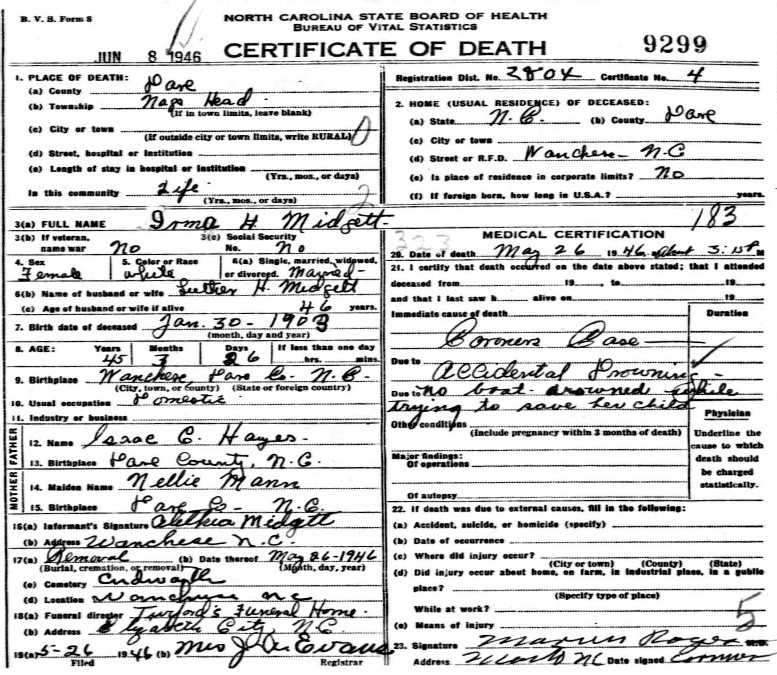 B. V. S. Form 8
NORTH CAROLINA STATE BOARD OF HEALTH
BUREAU OF VITAL STATISTICS
JUN 8 1946 CERTIFICATE OF DEATH 9299
1. PLACE OF DEATH:
(a) County Dare
(b) Township Nags Head
(If in town limits, leave blank)
(c) City or town
(If outside city or town limits, write RURAL) 0
(d) Street, hospital or Institution
(e) Length of stay in hospital or Institution
(Yrs., mos., or days)
In this community Life
(Yrs., mos., or days) 2
Registration Dist. No. 2804 Certificate No. 4
2. HOME (USUAL RESIDENCE) OF DECEASED:
(a) State N.C. (b) County Dare
(c) City or town
(d) Street or R.F.D. Wanchese - N.C
(e) Is place of residence in corporate limits? No
(f) If foreign born, how long in U.S.A.? years.
3(a) FULL NAME Irma H. Midgett
183
3(b) If veteran, name war No
3(c) Social Security No. No
4. Sex Female
5. Color or Race white
6(a) Single, married, widowed, or divorced. Married
6(b) Name of husband or wife Luther H. Midgett
(c) Age of husband or wife if alive 46 years.
7. Birth date of deceased Jan. 30 - 1903
(month, day and year)
8. AGE: Years Months Days If less than one day
45 3 26 hrs. mins.
9. Birthplace Wanchese Dare Co. N.C.
(City, town, or county) (State or foreign country)
10. Usual occupation Domestic
11. Industry or business
FATHER
12. Name Isaac C. Hayes
13. Birthplace Dare County, N.C.
MOTHER
14. Maiden Name Nellie Mann
15. Birthplace Dare Co - N.C.
16(a) Informant's Signature Midgett
(b) Address Wanchese N.C.
17(a) Removal (b) Date thereof May 26 - 1946
(Burial, cremation, or removal) (Month, day, year)
(c) Cemetery Cudworth
(d) Location Wanchese NC
18(a) Funeral director Twiford's Funeral Home.
(b) Address Elizabeth City N.C.
19(a) 5-26 1946 (b) Mrs J. W. Evans
Filed Registrar
MEDICAL CERTIFICATION
323
20. Date of death May 26 1946 about 3:15 P M
21. I certify that death occurred on the date above stated; that I attended
deceased from 19 , to 19
and that I last saw h alive on 19
Immediate cause of death Duration
Coroners Case
Due to Accidental Drowning
Due to no boat - drowned while
trying to save her child
Other conditions
(Include pregnancy within 3 months of death)
Major findings:
Of operations
Of autopsy
Physician
Underline the cause to which death should be charged statistically.
22. If death was due to external causes, fill in the following:
(a) Accident, suicide, or homicide (specify)
(b) Date of occurrence
(c) Where did injury occur?
(City or town) (County) (State)
(d) Did injury occur about home, on farm, in industrial place, in a public
place?
(Specify type of place)
While at work?
(e) Means of injury 5
23. Signature
Address NC Date signed Coroner